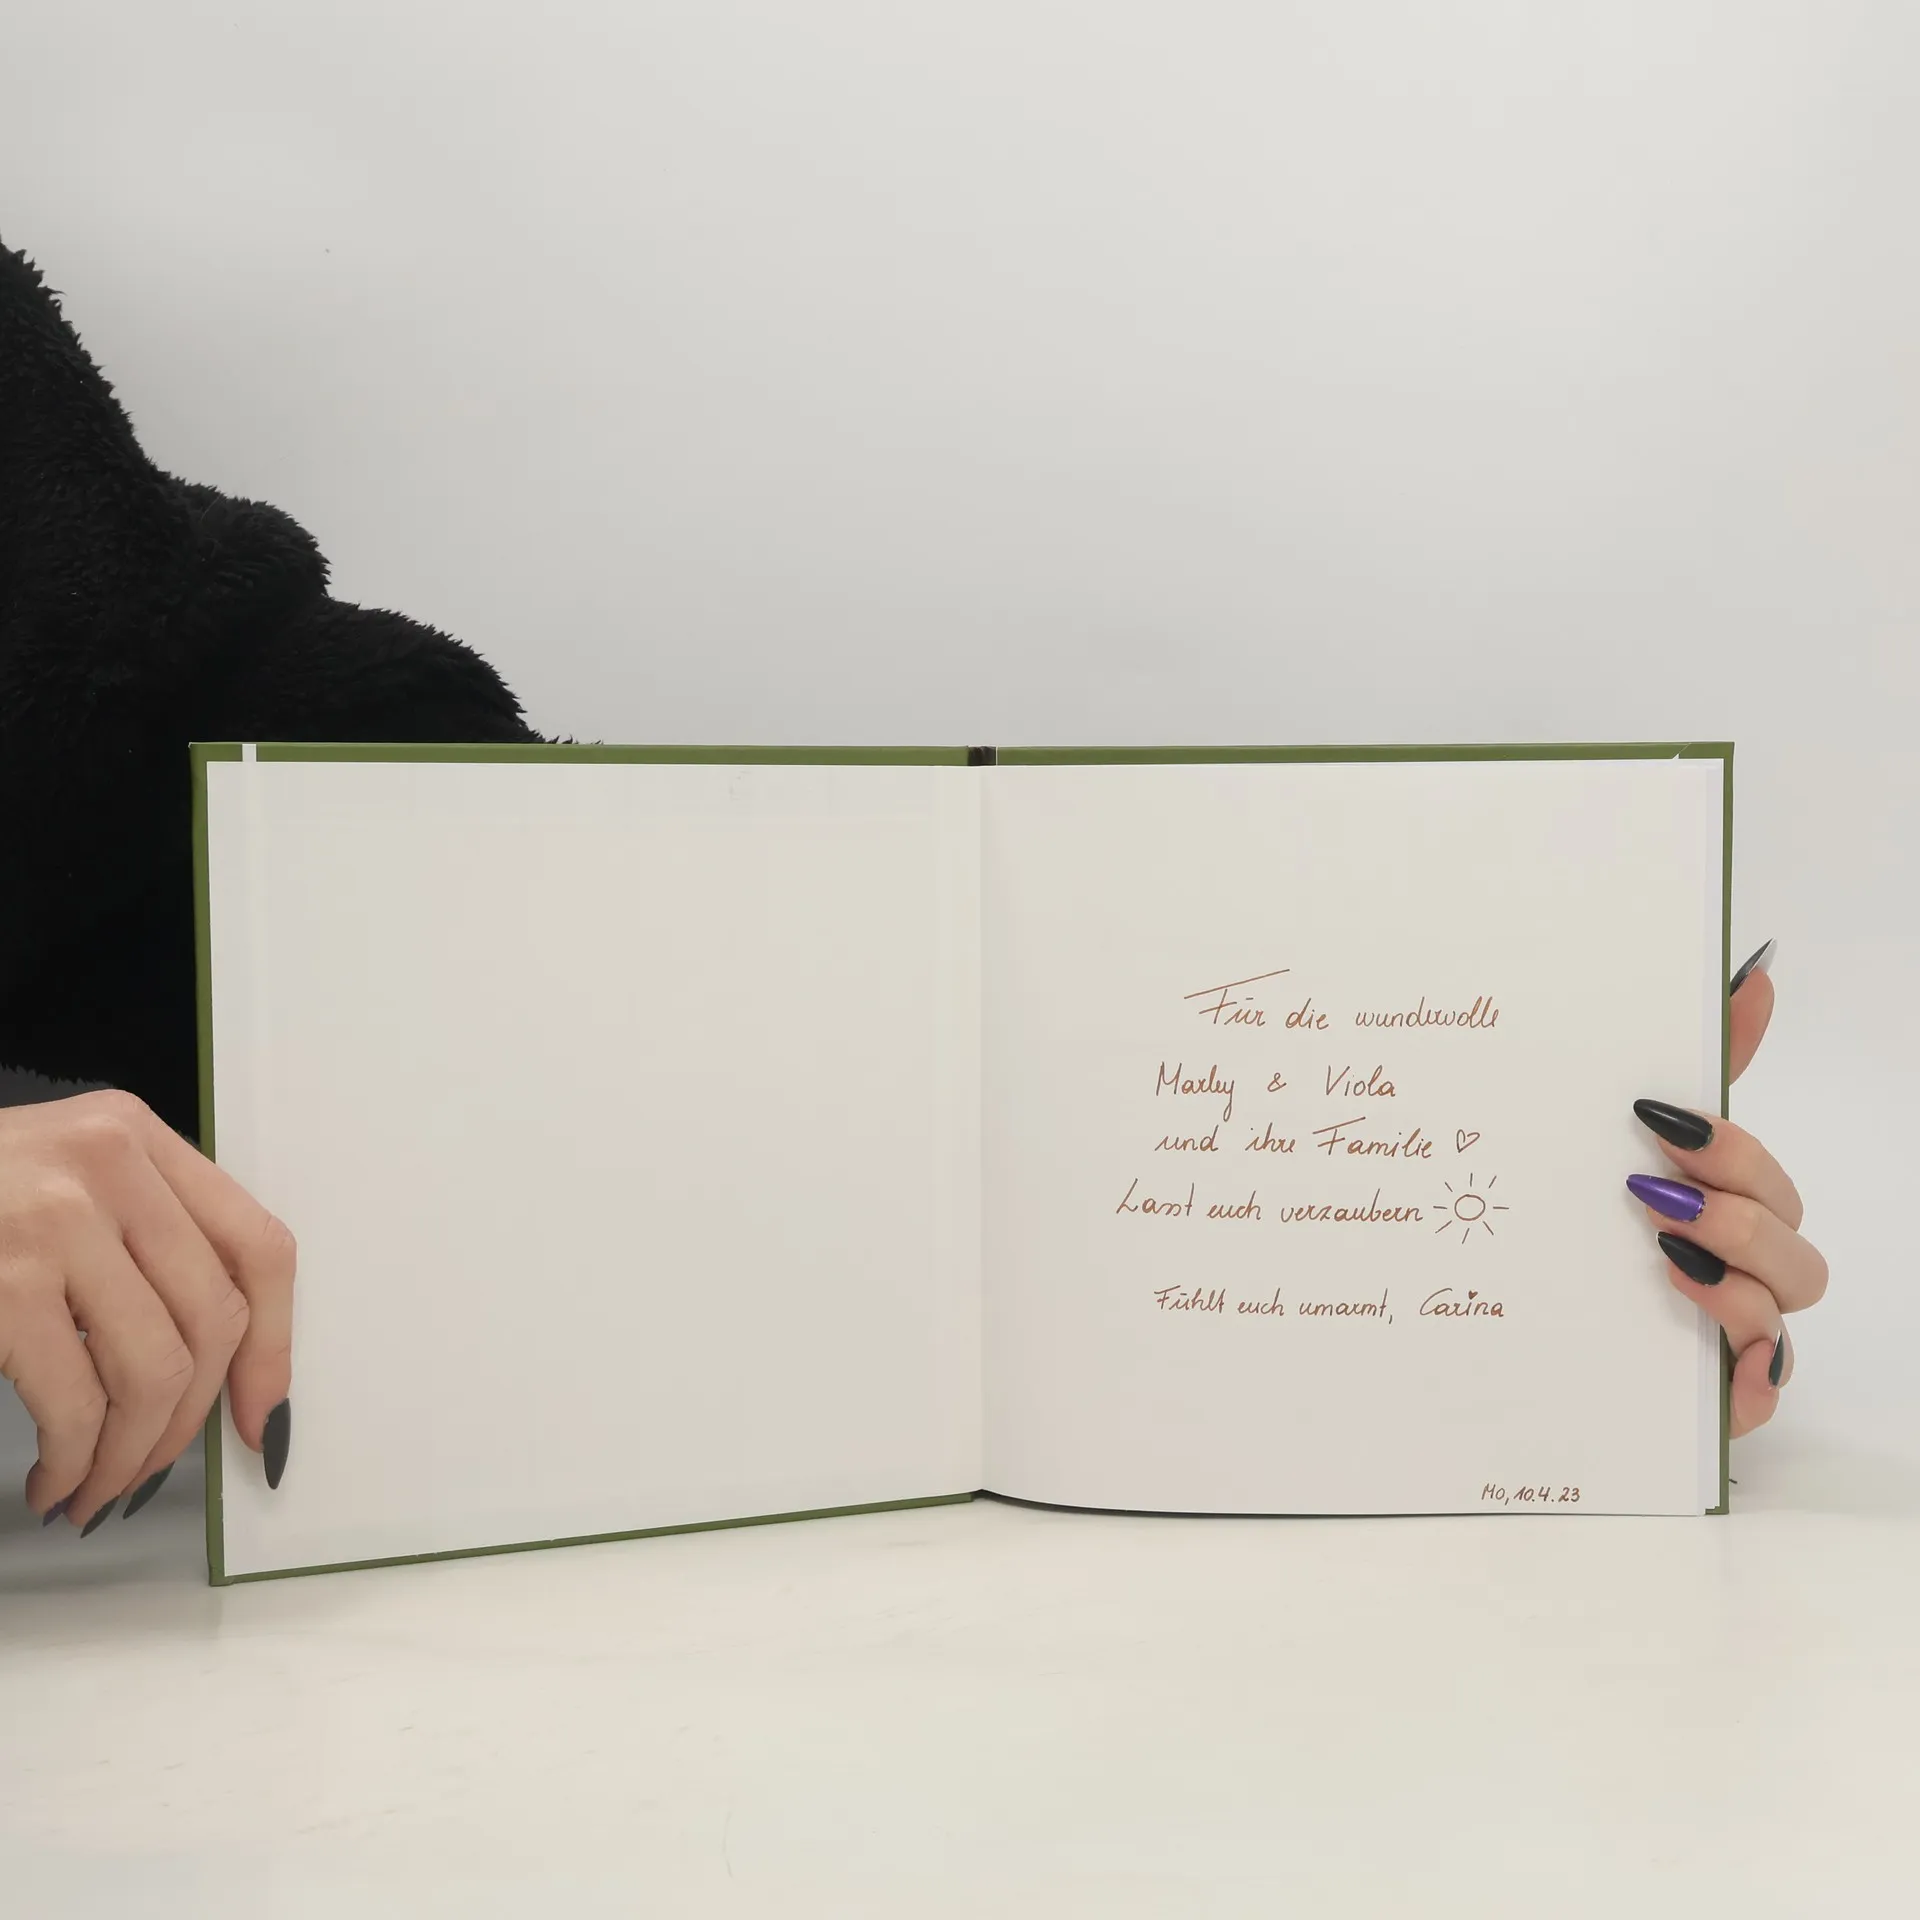 Für die wundervolle
Marley & Viola
und ihre Familie ♡
Lasst euch verzaubern
Fühlt euch umarmt, Carina
Mo, 10.4.23